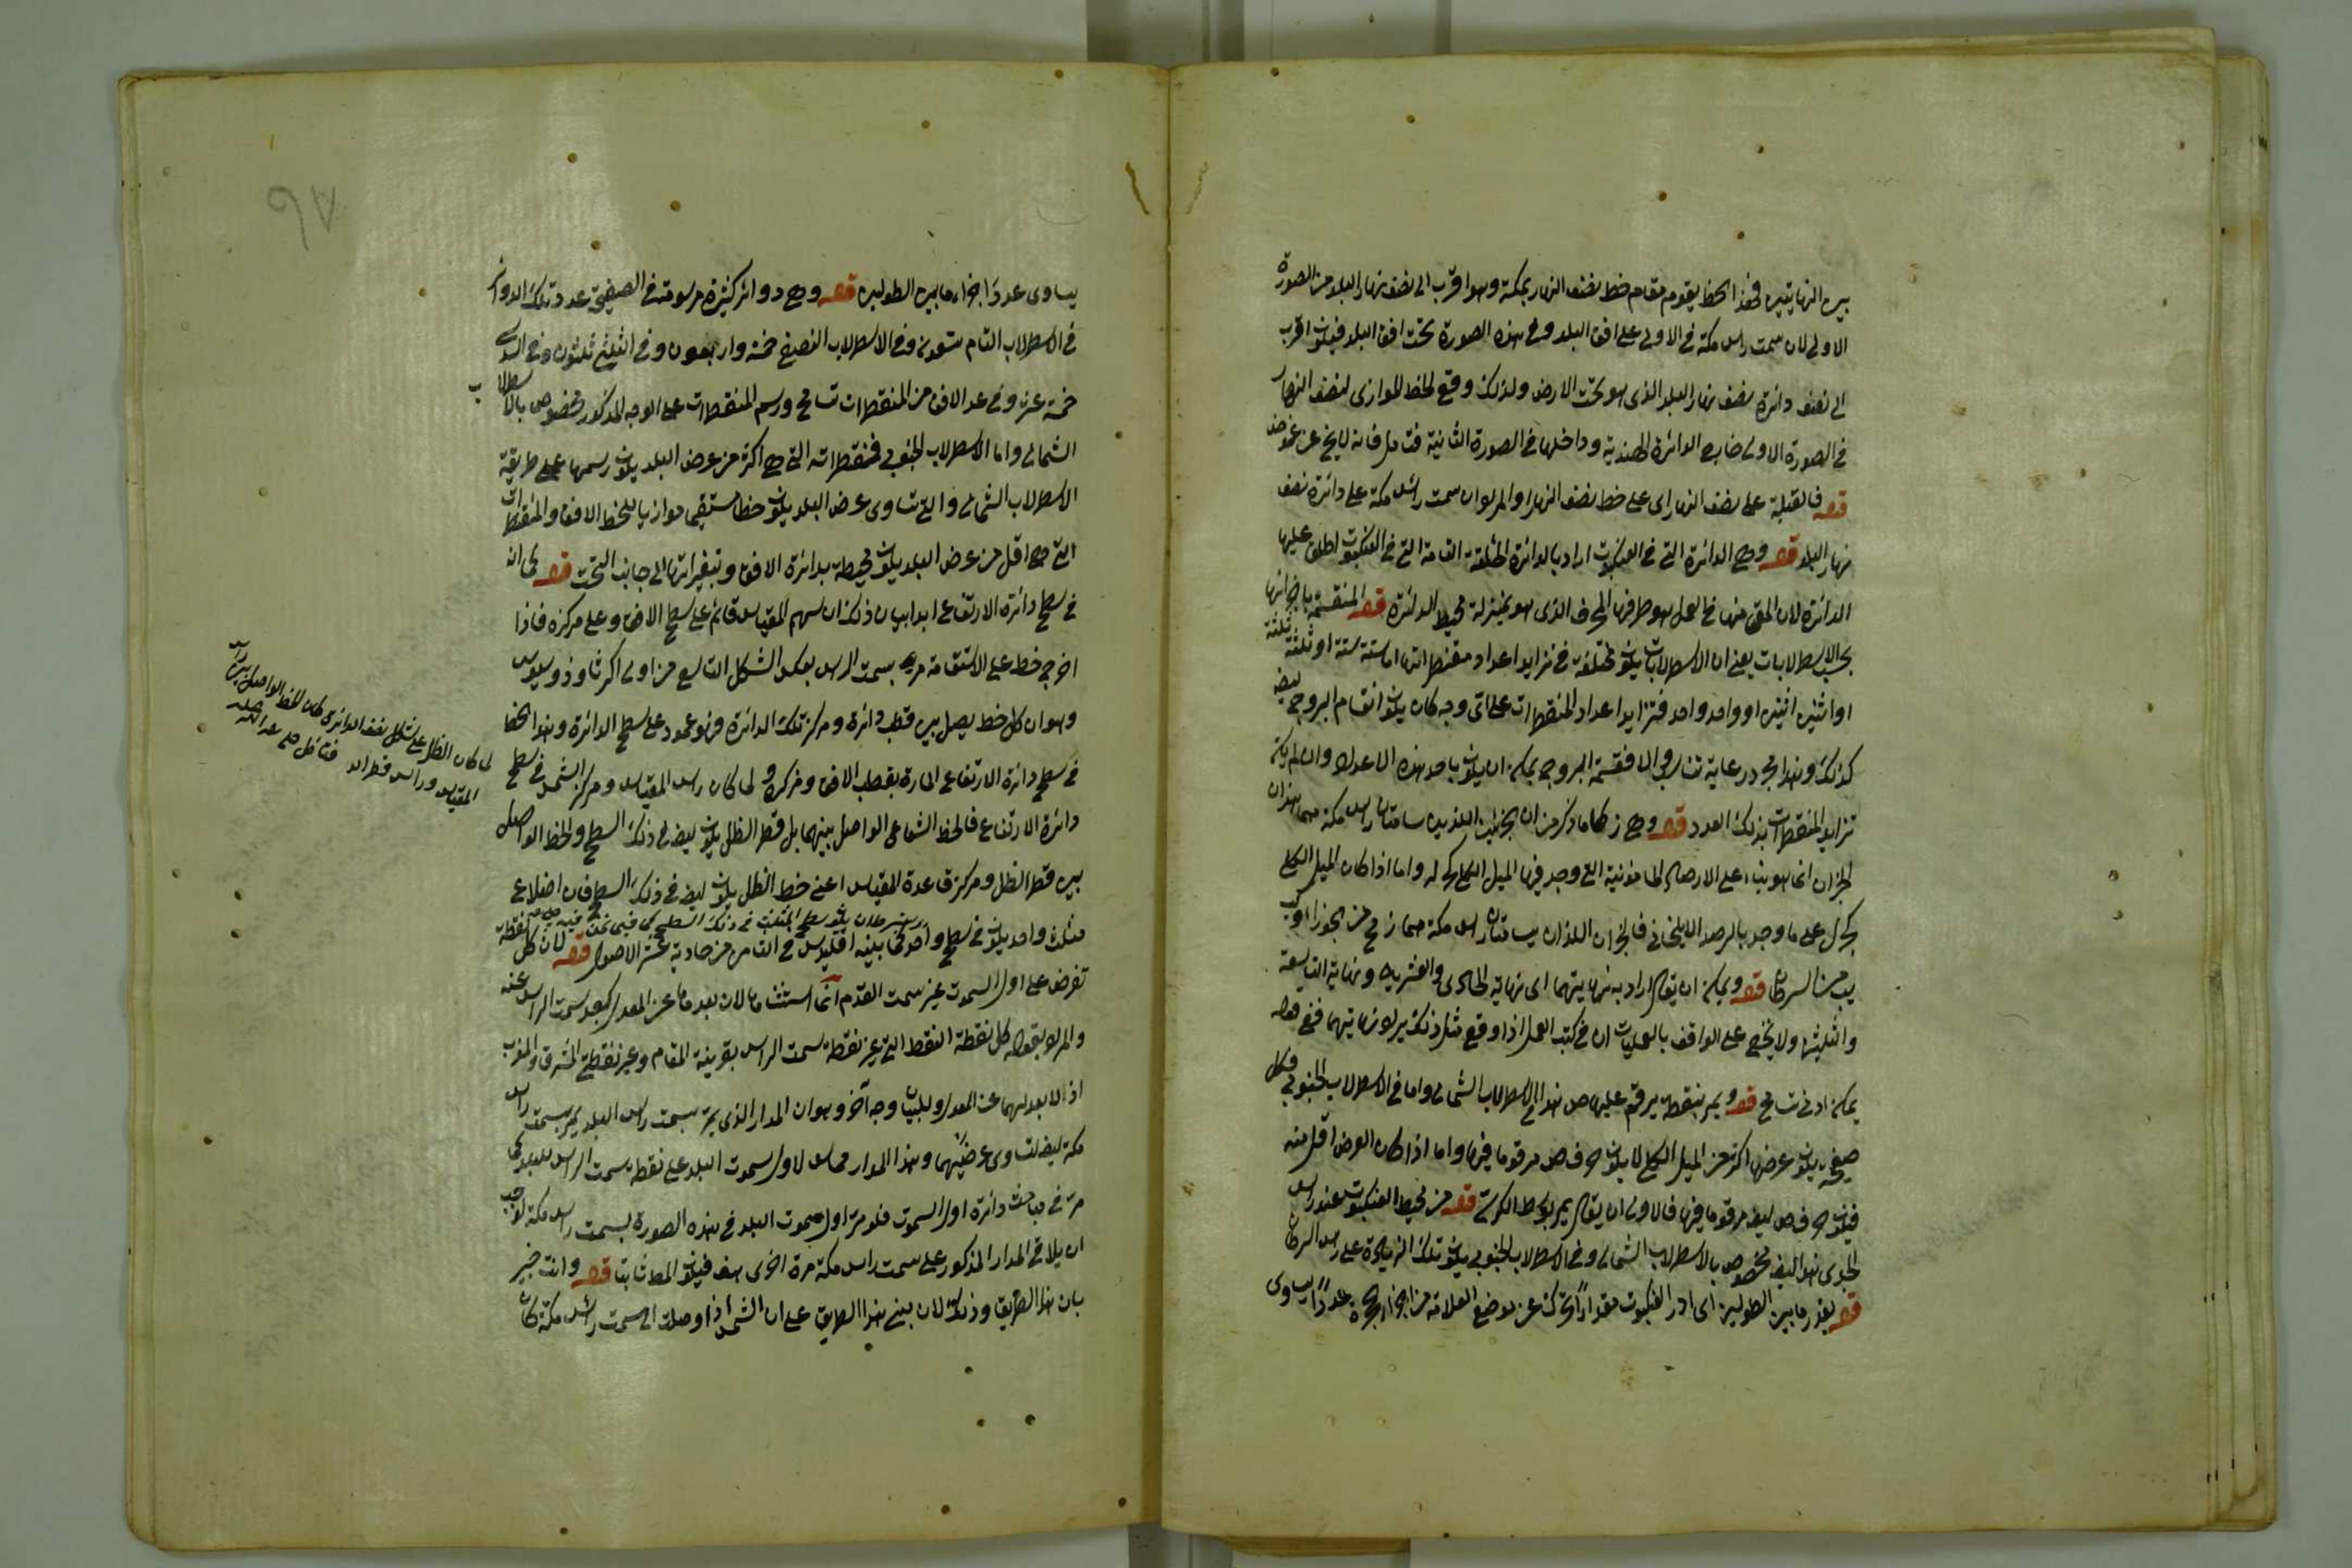 بين النهايتين فهذا الخط يقوم مقام خط نصف النهار بمكة وهو اقرب الى نصف نهار البلد من الصورة
الاولى لان سمت راس مكة في الاولى على افق البلد وفي هذه الصورة تحت افق البلد فيكون اقرب
الى نصف دائرة نصف نهار البلد الذي هو تحت الارض ولذلك وقع الخط الموازي لنصف النهار
في الصورة الاولى خارج الدائرة الهندية وداخلها في الصورة الثانية فتامل فانه لا يخ عن غموض
قوله فالقبلة على نصف النهار اى على خط نصف النهار والمراد ان سمت راس مكة على دائرة نصف
نهار البلد قوله وهى الدائرة التى في العنكبوت اراد بالدائرة الحلقة التامة التى في العنكبوت اطلق عليها
الدائرة لان المق منها في العمل هو طرفها المحرف الذى هو بمنزلة محيط الدائرة قوله المنقسمة باجزائها
بحسب الاسطرلابات يعنى ان الاسطرلابات يكون مختلفة في تزايد اعداد مقنطراتها اما ستة ستة او ثلثة ثلثة
او اثنين اثنين او واحد واحد فتزايد اعداد المقنطرات على اى وجه كان يكون انقسام البروج ايضا
كذلك وهذا مجرد رعاية تناسب والا فقسمة البروج يمكن ان يكون باحد هذه الاعداد وان لم يكن
تزايد المقنطرات بذلك العدد قوله وهى ز كاما ذكر من ان الجزئين اللذين يسامتان راس مكة هما هذان
الجزءان انما هو بناء على الارصاد المامونية التى وجد فيها الميل الكلى كج له واما اذا كان الميل الكلى
كج ل على ما وجد بالرصد الايلخانى فالجزءان اللذان يسامتان راس مكة هما ز مح من الجوزاء و كب
يب من السرطان قوله ويمكن ان يقال اراد به نهايتهما اى نهاية الحادى والعشرين ونهاية التاسعة
والثلثين ولا يخفى على الواقف بالعمليات ان في كتب العمل اذا وقع مثل ذلك يراد نهايتهما ففى قوله
يمكن ادنى تسامح قوله ويمر بنقطة يرقم عليها ص هذا في الاسطرلاب الشمالى واما في الاسطرلاب الجنوبى فكل
صفيحة يكون عرضها اكثر من الميل الكلى لا يكون حرف ص مرقوما فيها واما اذا كان العرض اقل منه
فيكون حرف ص ايضا مرقوما فيها فالاولى ان يقال يمر بوسط الكرسى قوله من محيط العنكبوت عند راس
الجدى هذا ايضا مخصوص بالاسطرلاب الشمالى وفي الاسطرلاب الجنوبى يكون تلك الزيادة على راس السرطان
قوله بقدر ما بين الطولين اى ادر العنكبوت مقدارا يتحرك عن موضع العلامة من اجزاء الحجرة عددا يساوى
يساوى عدد اجزاء ما بين الطولين قوله وهى دوائر كثيرة مرسومة في الصفيحة عدد تلك الدوائر
في الاسطرلاب التام تسعون وفي الاسطرلاب النصفى خمسة واربعون وفي الثلثى ثلثون وفي السدسى
خمسة عشر وفي عد الافق من المقنطرات تسامح ورسم المقنطرات على الوجه المذكور مخصوص بالاسطرلاب
الشمالى واما الاسطرلاب الجنوبى فمقنطراته التى هى اكثر من عرض البلد يكون رسمها على طريقة
الاسطرلاب الشمالى والتى تساوى عرض البلد يكون خطا مستقيما موازيا للخط الافق والمقنطرات
التى هى اقل من عرض البلد يكون محيطة بدائرة الافق وتقعيراتها الى جانب التحت قوله لما انه
في سطح دائرة الارتفاع ابدا بيان ذلك ان سهم المقياس قائم على سطح الافق وعلى مركزه فاذا
اخرج خط على الاستقامة مر بسمت الراس بعكس الشكل التاسع من اولى اكر ثاوذوسيوس
وهو ان كل خط يصل بين قطب دائرة ومركز تلك الدائرة فهو عمود على سطح الدائرة وهذا الخط
في سطح دائرة الارتفاع المارة بقطب الافق ومركزه ولما كان راس المقياس ومركز الشمس في سطح
دائرة الارتفاع فالخط الشعاعى الواصل بينهما بل قطر الظل يكون ايضا في ذلك السطح والخط الواصل
بين قطر الظل ومركز قاعدة المقياس اعنى خط الظل يكون ايضا في ذلك السطح فان اضلاع
مثلث واحد يكون في سطح واحد كما بينه اقليدس في الثامن من حادية عشر الاصول قوله لان كل نقطة
تفرض على اول السموت غير سمت القدم انما استثناها لان بعدها عن المعدل كبعد سمت الراس عنه
والمراد بقوله كل نقطة النقط التى غير نقطة سمت الراس بقرينة المقام وغير نقطتى المشرق والمغرب
اذ لا بعد لهما عن المعدل وللبيان وجه آخر وهو ان المدار الذى يمر بسمت راس البلد يمر بسمت راس
مكة ايضا لتساوى عرضيهما وهذا المدار مماس لاول سموت البلد على نقطة سمت الراس للبلد كما
مر في مباحث دائرة اول السموت فلو مر اول سموت البلد في هذه الصورة بسمت راس مكة لوجب
ان يلاقى المدار المذكور على سمت راس مكة مرة اخرى هف فيكون المط ثابتا قوله وانت خبير
بان هذا الطريق وذلك لان مبنى هذا الطريق على ان الشمس اذا وصلت الى سمت راس مكة كان
لما كان الظل على شكل نصف الدائرة كان الخط الواصل بين راس
المقياس وراس قطر